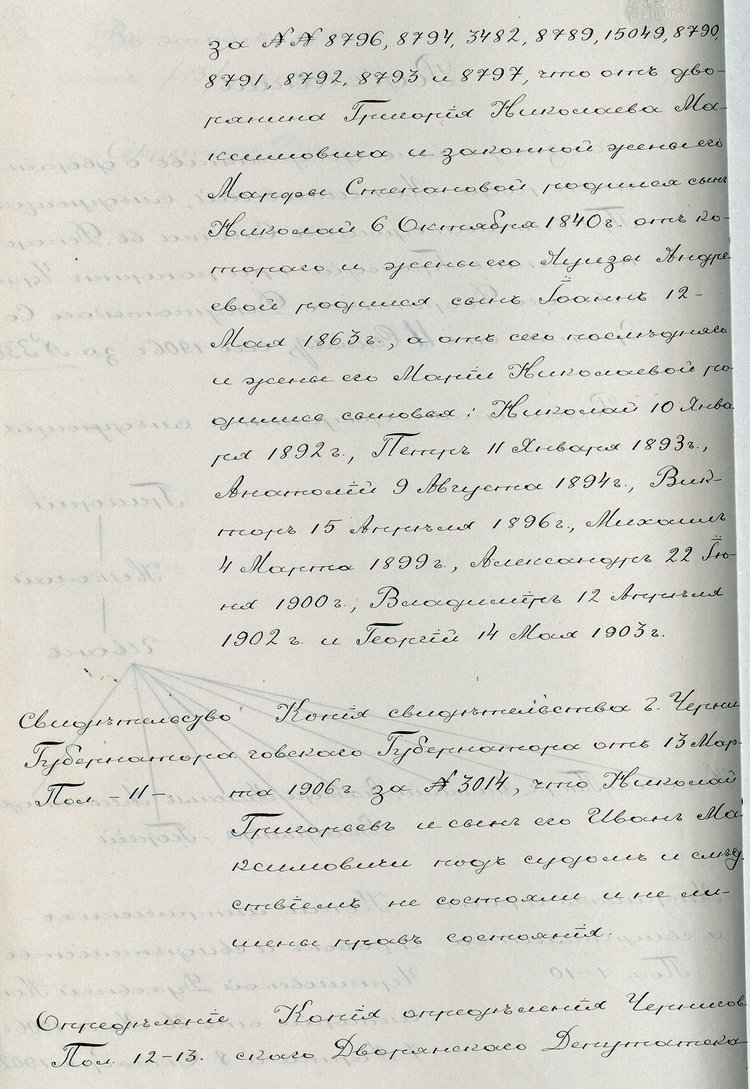 за №№ 8796, 8794, 3482, 8789, 15049, 8790,
8791, 8792, 8793 и 8797, что отъ дво-
рянина Григорія Николаева Ма-
ксимовича и законной жены его
Марфы Степановой родился сынъ
Николай 6 Октября 1840г. отъ ко-
тораго и жены его Луизы Андре-
евой родился сынъ Іоаннъ 12-
Мая 1863г., а отъ сего послѣдняго
и жены его Маріи Николаевой ро-
дились сыновья: Николай 10 Янва-
ря 1892г., Петръ 11 Января 1893г.,
Анатолій 9 Августа 1894г., Вик-
торъ 15 Апрѣля 1896г., Михаилъ
4 Марта 1899г., Александръ 22 Ію-
ня 1900г., Владиміръ 12 Апрѣля
1902г. и Георгій 14 Мая 1903г.
Свидѣтельство Копія свидѣтельства г. Черни-
Губернатора говскаго Губернатора отъ 13 Мар-
Пол. -11-. та 1906г. за № 3014, что Николай
Григорьевъ и сынъ его Иванъ Ма-
ксимовичи подъ судомъ и слѣд-
ствіемъ не состояли и не ли-
шены правъ состоянія.
Опредѣленіе Копія опредѣленія Чернигов-
Пол. 12-13. скаго Дворянскаго Депутатска-